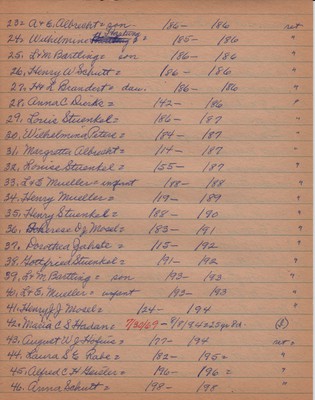 23= A & E. Albrecht= son 186 - 186 not
24. Wilhelmine Hartung = 185 - 186 "
25. L & M Bartling = son 186 - 186 "
26. Henry W Schutt = 186 - 186 "
27. H & L Brandert = dau. 186 - 186 "
28. Anna C Dierke = 142 - 186 "
29. Louis Stuenkel = 186 - 187 "
30. Wilhelmina Peters = 184 - 187 "
31. Margretta Albrecht = 114 - 187 "
32. Louise Stuenkel = 155 - 187 "
33. L & E Mueller = infant 188 - 188 "
34. Henry Mueller = 119 - 189 "
35. Henry Stuenkel = 188 - 190 "
36. Therese D J Mosel = 183 - 191 "
37. Dorothea Jahste = 115 - 192 "
38. Gottfried Stuenkel = 191 - 192 "
39. L & M Bartling = son 193 - 193 "
40. L & E. Mueller = infant 193 - 193 "
41. Henry J. J Mosel = 124 - 194 "
42. Maria C S Harden = 7/30/69 - 8/8/94
43. August W J Hofius = 177 - 194 not
44. Laura S E Rabe = 182 - 195 = "
45. Alfred C H Geister = 196 - 196 = "
46. Anna Schutt = 198 - 198 "